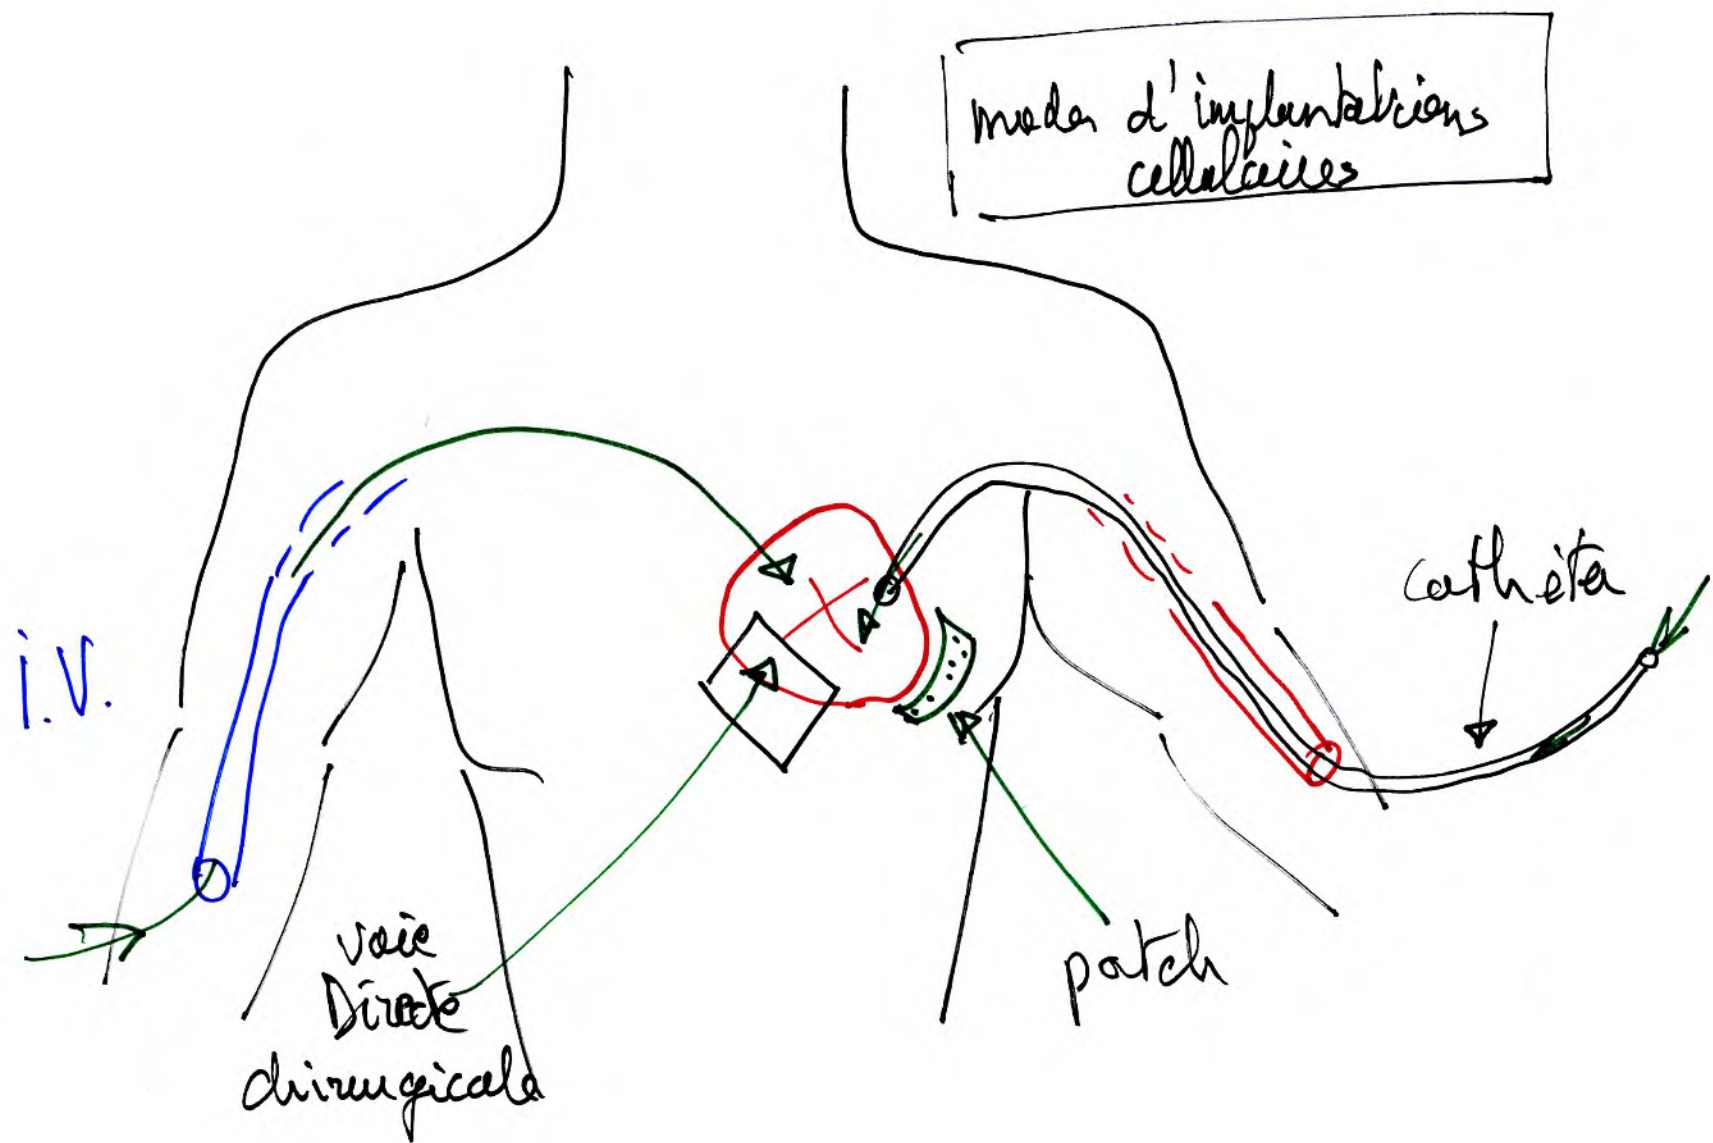 modes d'implantations
cellulaires
i.v.
cathéter
voie
Directe
chirurgicale
patch